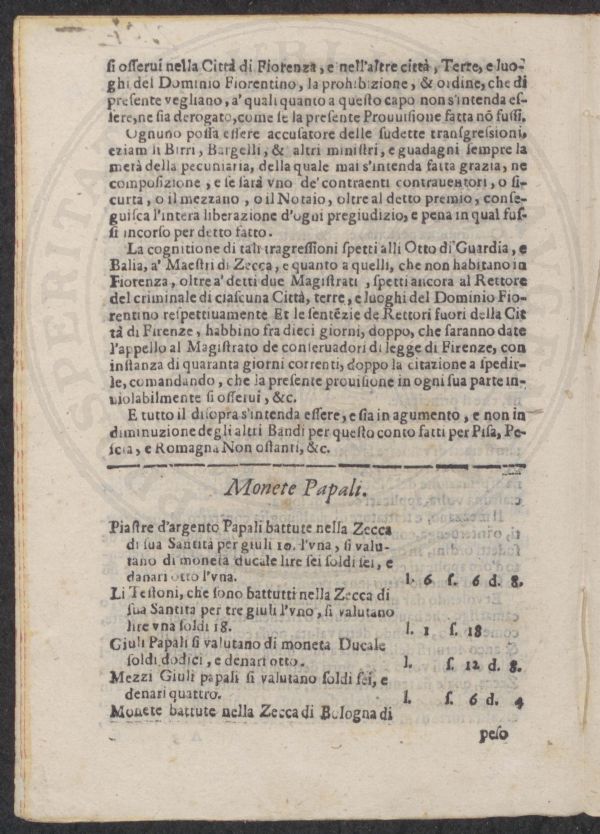 si osserui nella Città di Fiorenza, e nell'altre città, Terre, e luo-
ghi del Dominio Fiorentino, la prohibizione, & ordine, che di
presente vegliano, a' quali quanto a questo capo non s'intenda es-
sere, ne sia derogato, come se la presente Prouuisione fatta nõ fussi.
Ognuno possa essere accusatore delle sudette transgressioni,
eziam li Birri, Bargelli, & altri ministri, e guadagni sempre la
metà della pecuniaria, della quale mai s'intenda fatta grazia, ne
composizione, e se sarà vno de' contraenti contrauentori, o si-
curtà, o il mezzano, o il Notaio, oltre al detto premio, conse-
guisca l'intera liberazione d'ogni pregiudizio, e pena in qual fus-
si incorso per detto fatto.
La cognitione di tali tragressioni spetti alli Otto di Guardia, e
Balia, a' Maestri di Zecca, e quanto a quelli, che non habitano in
Fiorenza, oltre a' detti due Magistrati, spetti ancora al Rettore
del criminale di ciascuna Città, terre, e luoghi del Dominio Fio-
rentino respettiuamente Et le sentẽzie de Rettori fuori della Cit
tà di Firenze, habbino fra dieci giorni, doppo, che saranno date
l'appello al Magistrato de conseruadori di legge di Firenze, con
instanza di quaranta giorni correnti, doppo la citazione a spedir-
le, comandando, che la presente prouisione in ogni sua parte in-
uiolabilmente si osserui, &c.
E tutto il disopra s'intenda essere, e sia in agumento, e non in
diminuzione degli altri Bandi per questo conto fatti per Pisa, Pe-
scia, e Romagna Non ostanti, &c.
Monete Papali.
Piastre d'argento Papali battute nella Zecca
di sua Santità per giuli 10. l'vna, si valu-
tano di moneta ducale lire sei soldi sei, e
danari otto l'vna. l. 6 s. 6 d. 8.
Li Testoni, che sono battutti nella Zecca di
sua Santità per tre giuli l'vno, si valutano
lire vna soldi 18. l. 1 s. 18
Giuli Papali si valutano di moneta Ducale
soldi dodici, e denari otto. l. s. 12 d. 8.
Mezzi Giuli papali si valutano soldi sei, e
denari quattro. l. s. 6 d. 4
Monete battute nella Zecca di Bologna di
peso